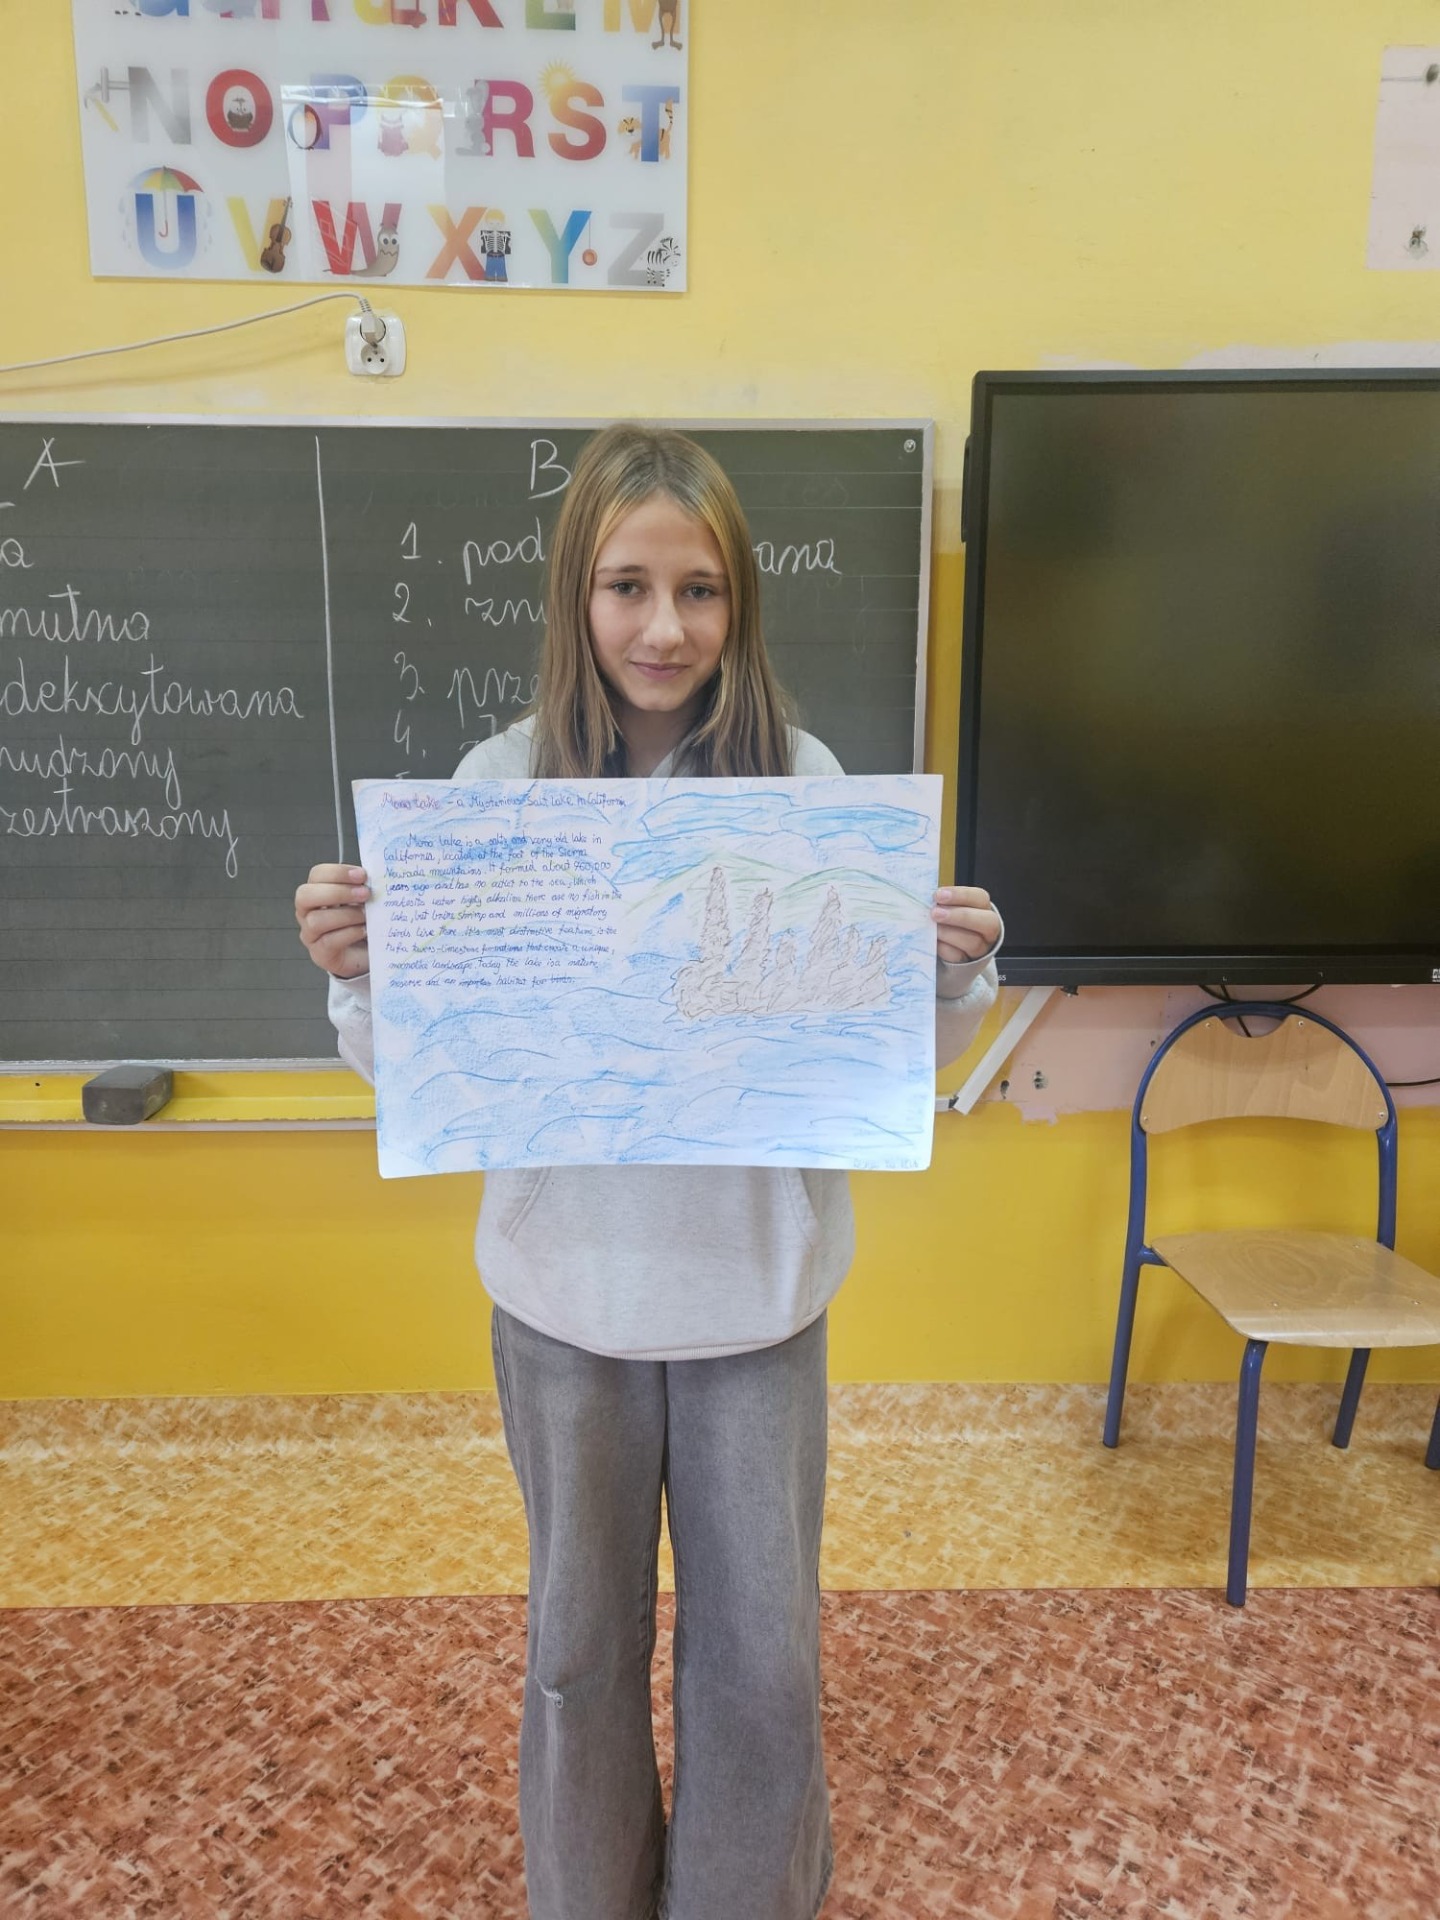 N O P Q R S T
U V W X Y Z
A
mutna
dekscytowana
nudzony
zestraszony
B
1. pod aną
2. znu
3. prze
4.
Mono Lake - a Mysterious Salt Lake in California
Mono Lake is a salty and very old lake in
California, located at the foot of the Sierra
Newada mountains. It formed about 760,000
years ago and has no outlet to the sea, which
makes its water highly alkaline. There are no fish in the
lake, but brine shrimp and millions of migratory
birds live there. It's most distinctive feature is the
tufa towers - limestone formations that create a unique,
moonlike landscape. Today the lake is a nature
reserve and an important habitat for birds.